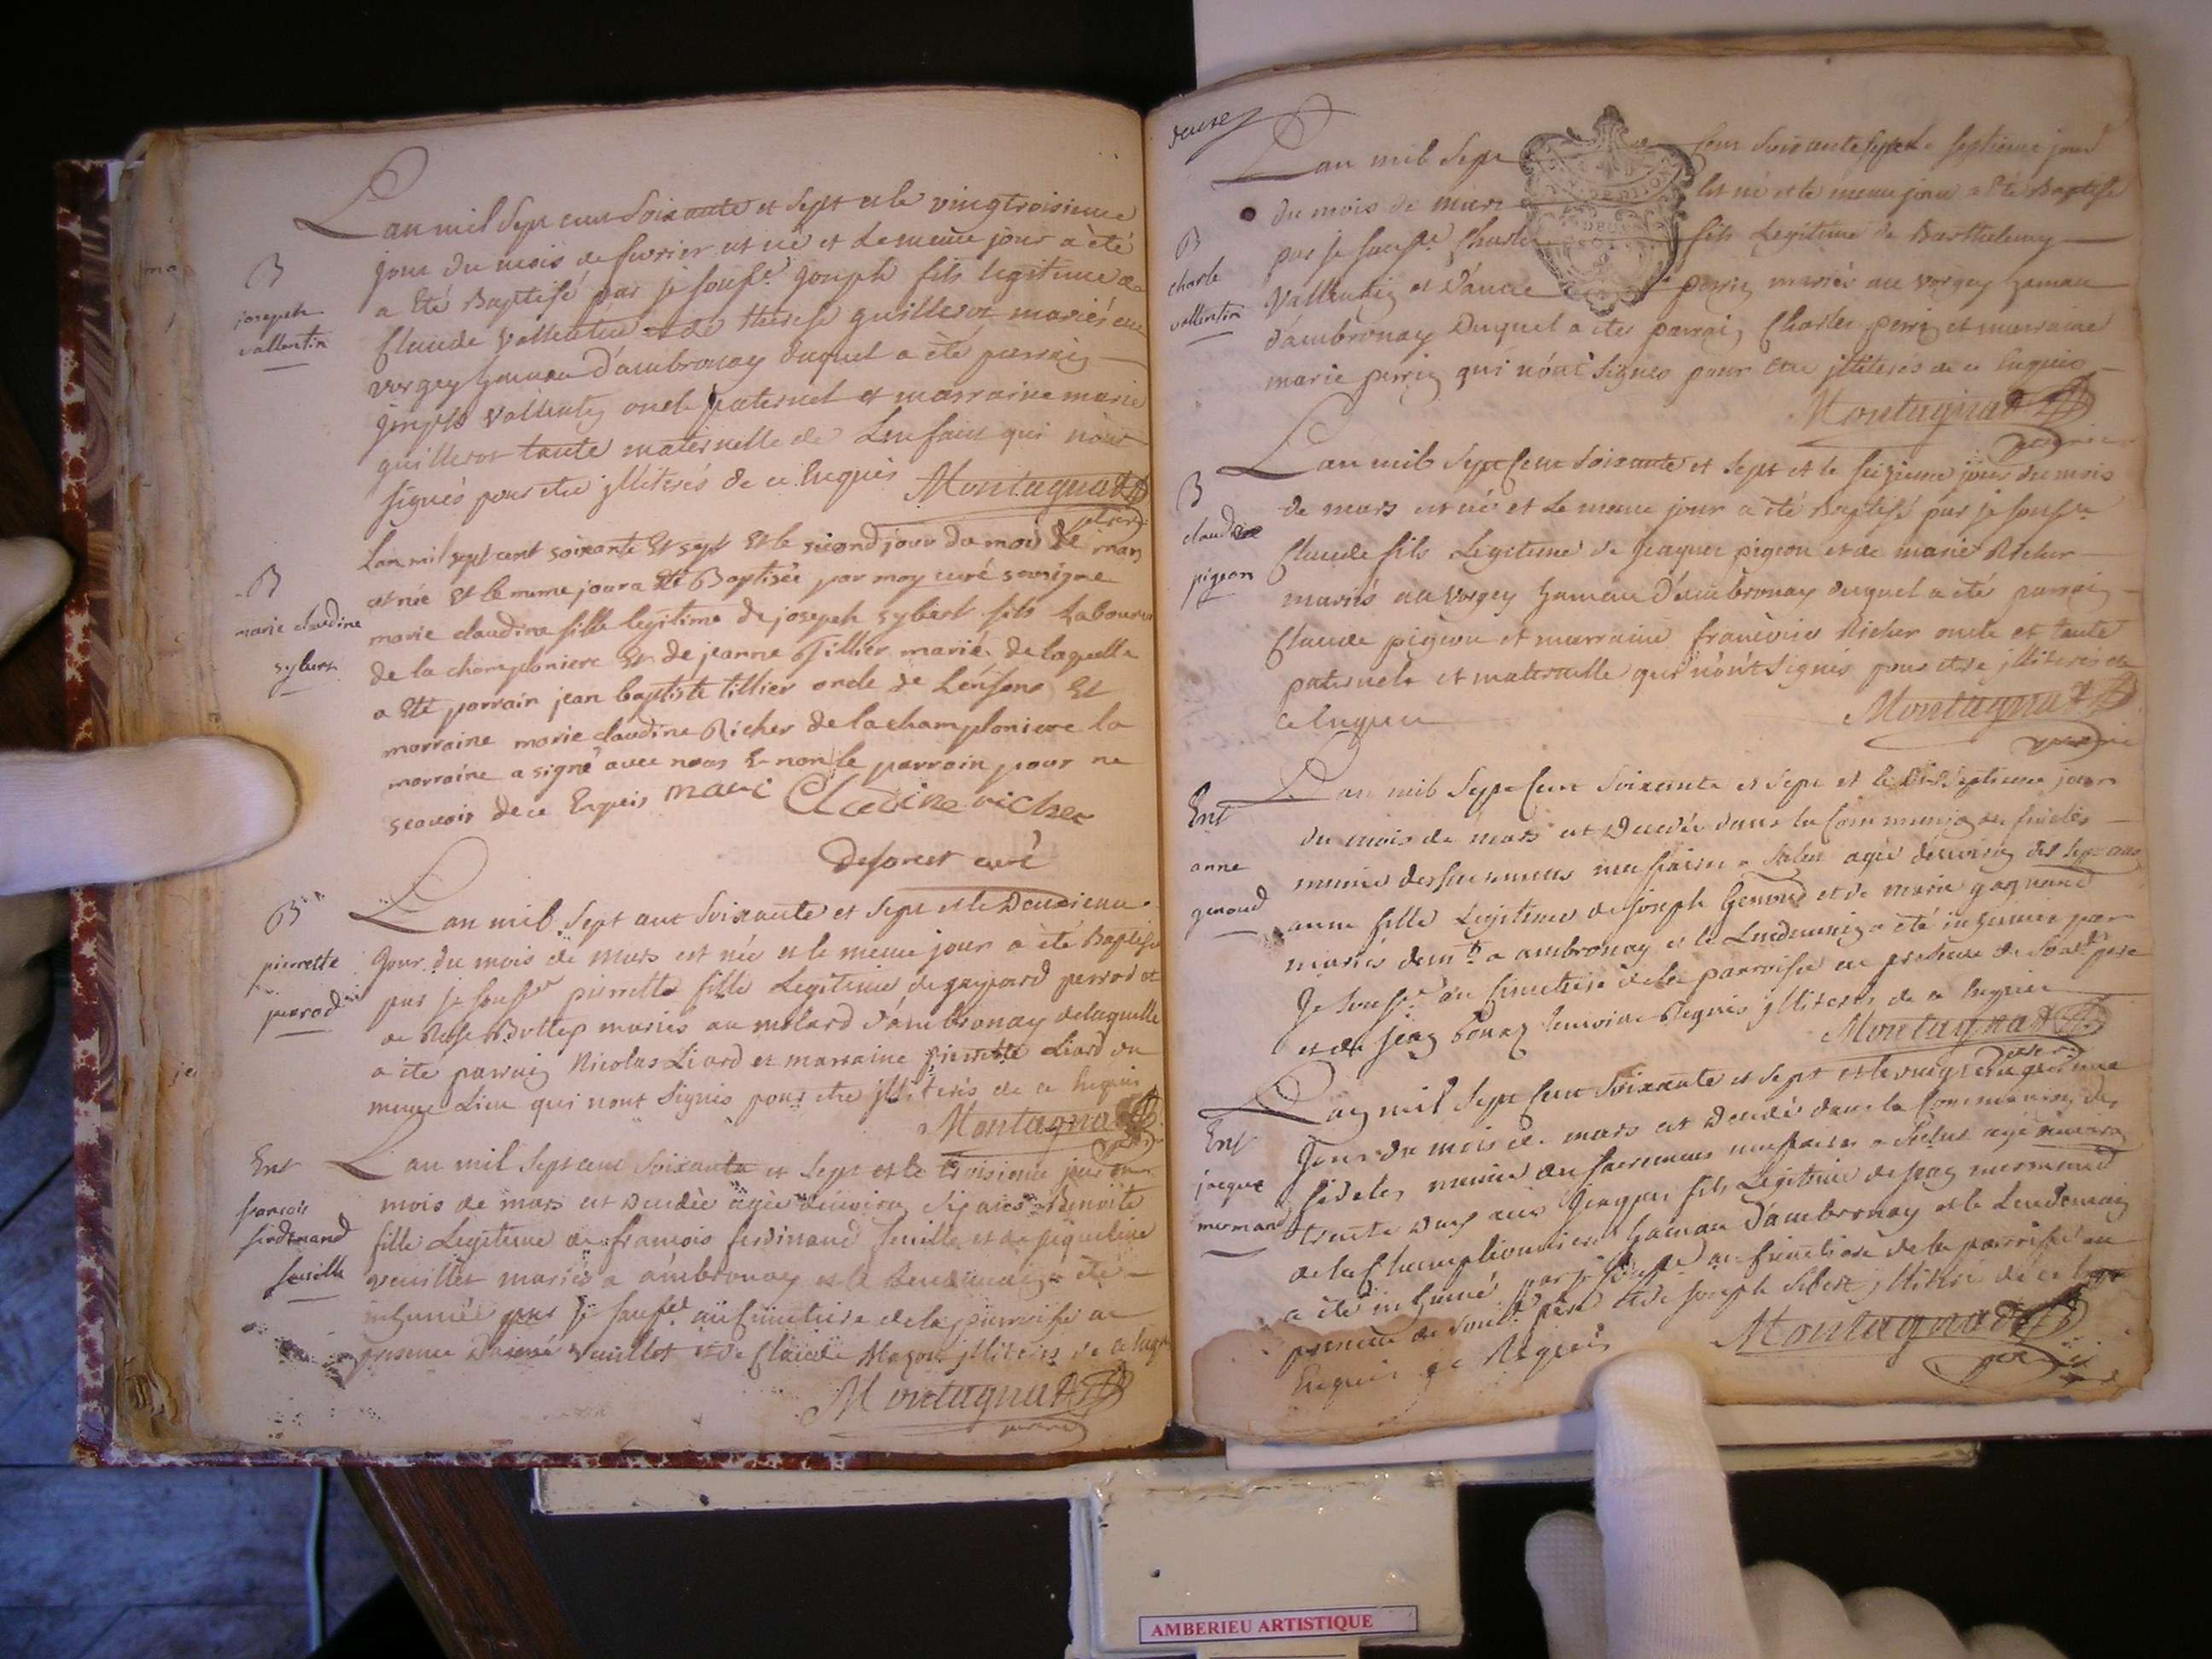 Lan mil sept cent soixante et sept et le vingtroisieme
jour du mois de fevrier est né et le meme jour a été
B
a été Baptisé par je souss.é joseph fils legitime de
joseph
vallentin
Claude Vallentin et de therese guilleros mariés au
vorgey hameau d'ambronay duquel a été parrain
joseph Vallentin oncle paternel et marraine marie
guilleros tante maternelle de Lenfant qui n'ont
signés pour etre jlliterés de ce Enquis Montagnat
Lan mil sept cent soixante Et sept Et le second jour du mois de mars
B
est née Et le meme jour a Eté Baptisée par moy curé sousigné
marie claudine
marie claudine fille legitime de joseph sybert fils Laboureur
de la champloniere Et de jeanne Tillier marié de laquelle
a Eté parrain jean baptiste tillier oncle de Lenfans Et
marraine marie claudine Richer de la champloniere la
marraine a signé avec nous Et non le parrain pour ne
scavoir de ce Enquis marie Claudine richer
curé
B
Lan mil sept cent soixante et sept et le Deuxieme
pierrette
jour du mois de mars est née et le meme jour a été Baptisée
perrod
par je sousse pierrette fille Legitime de gaspard perrod et
de Rose mariés au molard d'ambronay de laquelle
a été parrain Nicolas Liard et marraine pierrette Liard du
meme Lieu qui n'ont signés pour etre jlliterés de ce Enquis
Montagnat
Ent
Lan mil sept cent soixante et sept et le troisieme jour du
francois
ferdinand
mois de mars est decedée agée d'environ six Benoite
fille Legitime de francois ferdinand et de jaqueline
vuillet mariés a ambronay et le Lendemain a été
inhumée par je sousse au cimetiere de la parroisse en
presence vuillet et de Claude jlliterés de ce Enquis
Montagnat
Lan mil sept cent soixante sept et le septieme jour
du mois de mars est né et le meme jour a été Baptisé
B
par je sousse Charle fils Legitime de Barthelemy
charle
vallentin
Vallentin et d'anne perrin mariés au vorgey hameau
d'ambronay Duquel a été parrain Charles perrin et marraine
marie perrin qui n'ont signés pour etre jlliterés de ce Enquis
Montagnat
Lan mil sept cent soixante et sept et le seizieme jour du mois
B
de mars est né et le meme jour a été Baptisé par je sousse
claude
pigeon
Claude fils Legitime de jaques pigeon et de marie Richer
mariés au vorgey hameau d'ambronay duquel a été parrain
Claude pigeon et marraine francoise Richer oncle et tante
paternele et maternelle qui n'ont signés pour etre jlliterés de
ce Enquis Montagnat
Lan mil sept cent soixante et sept et le dixseptieme jour
Ent
du mois de mars est Decedée dans la Communion des fideles
anne
genoud
munie des sacremens agée d'environ sept ans
anne fille Legitime de joseph Genoud et de marie
mariés a ambronay et le Lendemain a été inhumée par
je sousse au cimetiere de la parroisse en presence de pere
et de jean Requis jlliterés de ce Enquis
Montagnat
Lan mil sept cent soixante et sept et le
Ent
jour du mois de mars est Decedé dans la Communion des
jacque
mermand
fideles munie des sacremens agé environ
trente ans jacques fils Legitime de jean mermand
de la Champlionniere hameau d'ambronay et le Lendemain
a été inhumé par je sousse au cimetiere de la parroisse en
presence de pere et de joseph sibert jlliterés de ce
Enquis Requis Montagnat
AMBERIEU ARTISTIQUE